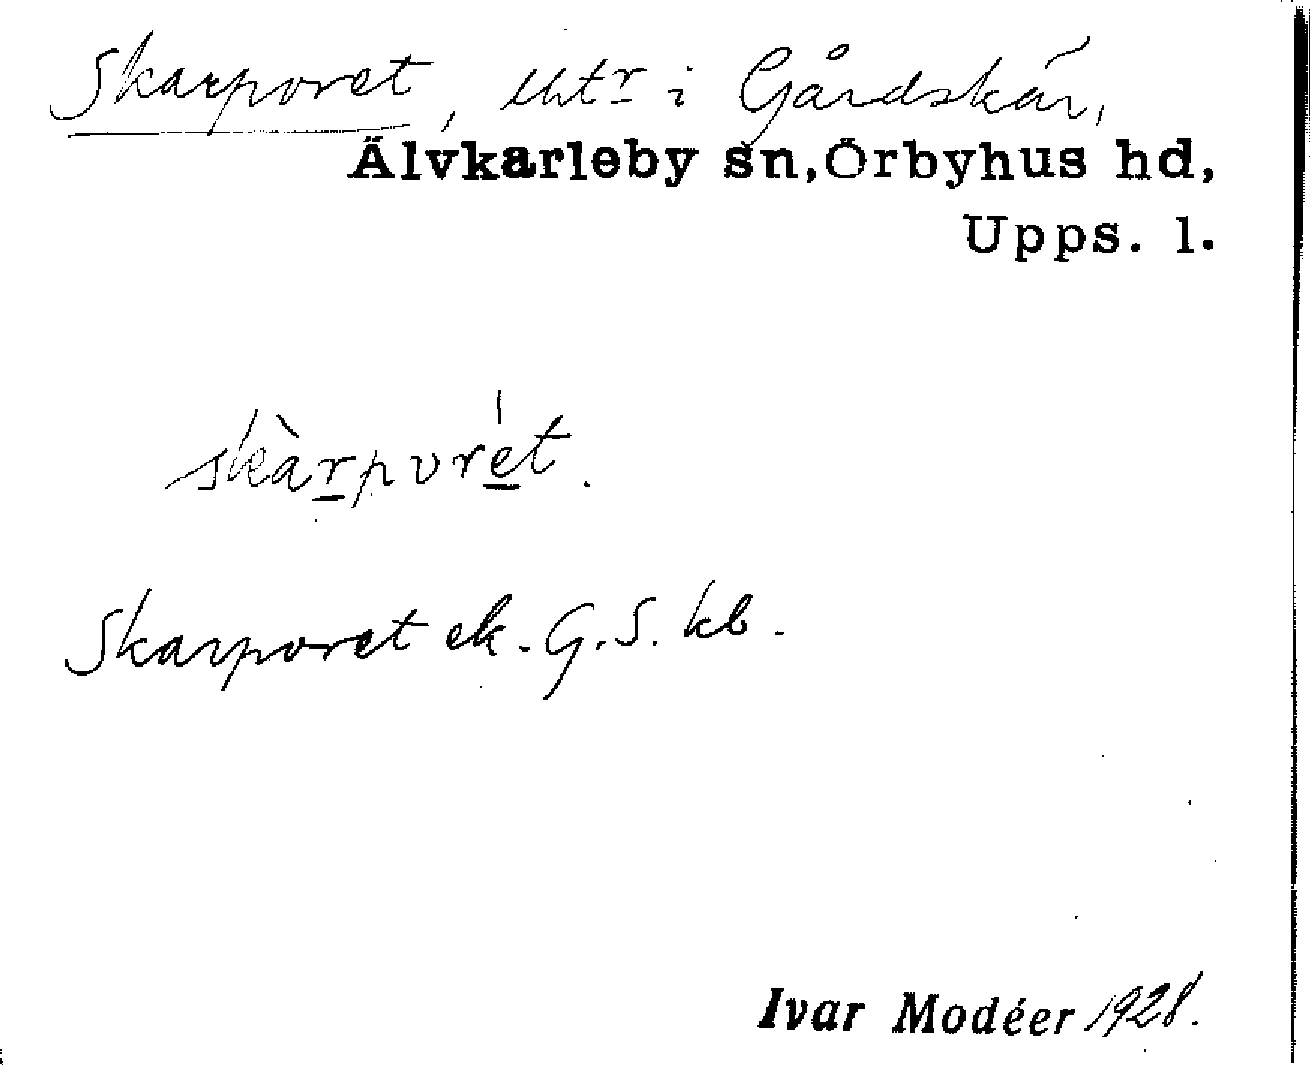 Skarporet, uhtr i Gårdskär,
Älvkarleby sn, Örbyhus hd,
Upps. l.
skàrpvrét.
Skarporet ek. G. S. kb.
Ivar Modéer 1928.